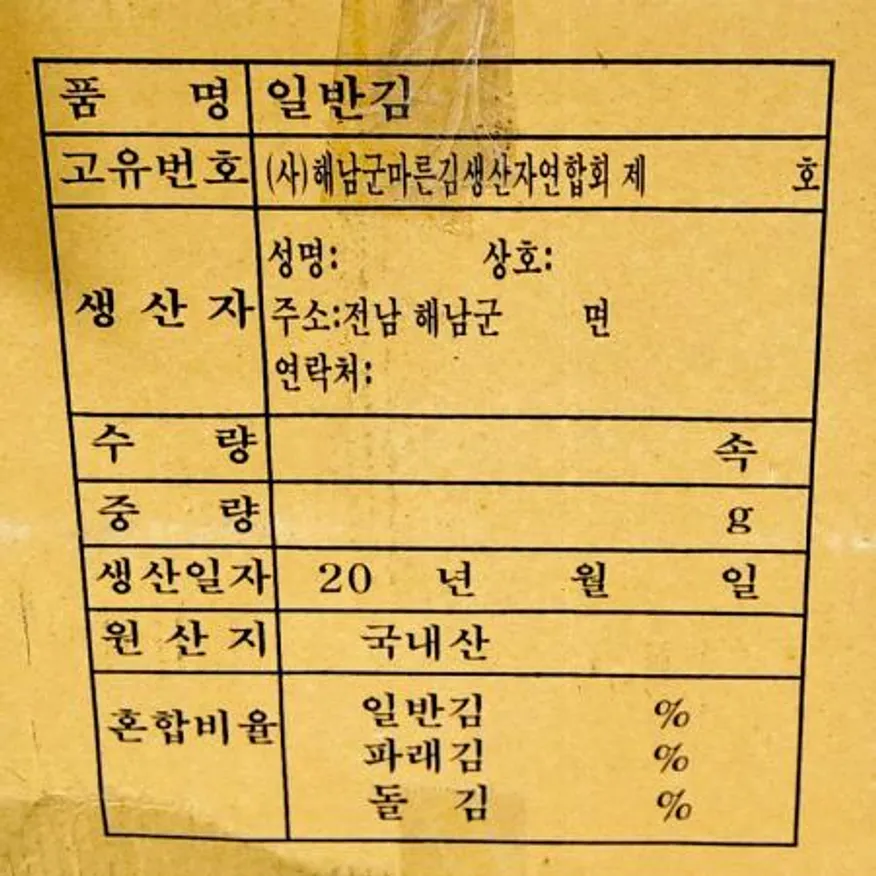 품 명 일반김
고유번호 (사)해남군마른김생산자연합회 제 호
생 산 자
성명: 상호:
주소:전남 해남군 면
연락처:
수 량 속
중 량 g
생산일자 20 년 월 일
원 산 지 국내산
혼합비율
일반김 %
파래김 %
돌 김 %